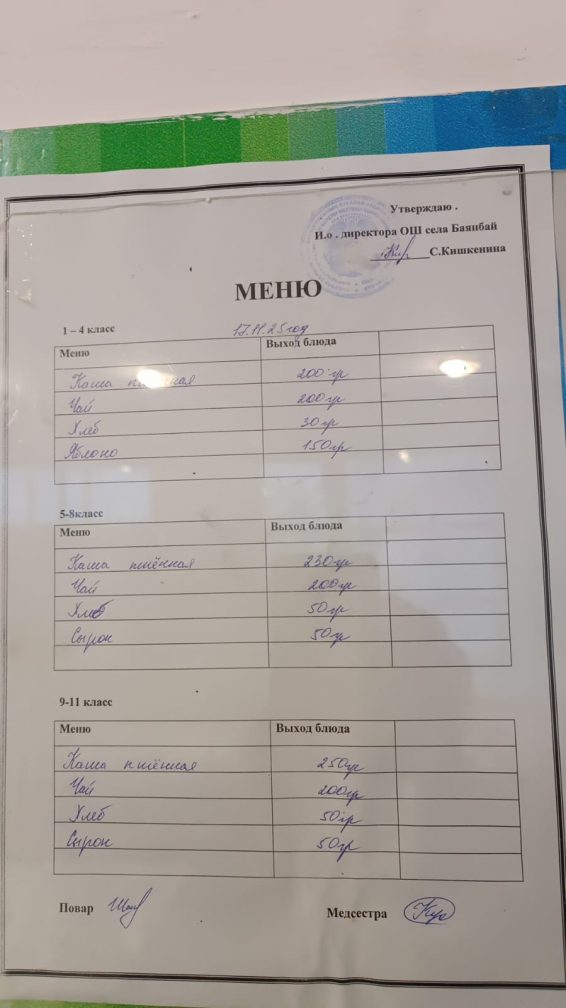 Утверждаю .
И.о . директора ОШ села Баянбай
С.Кишкенина
МЕНЮ
1 – 4 класс 17.11.25 год
Меню Выход блюда
Каша пшённая 200 гр
Чай 200 гр
Хлеб 30 гр
Яблоко 150 гр
5-8класс
Меню Выход блюда
Каша пшённая 230 гр
Чай 200 гр
Хлеб 50 гр
Сырок 50 гр
9-11 класс
Меню Выход блюда
Каша пшённая 250 гр
Чай 200 гр
Хлеб 50 гр
Сырок 50 гр
Повар Медсестра